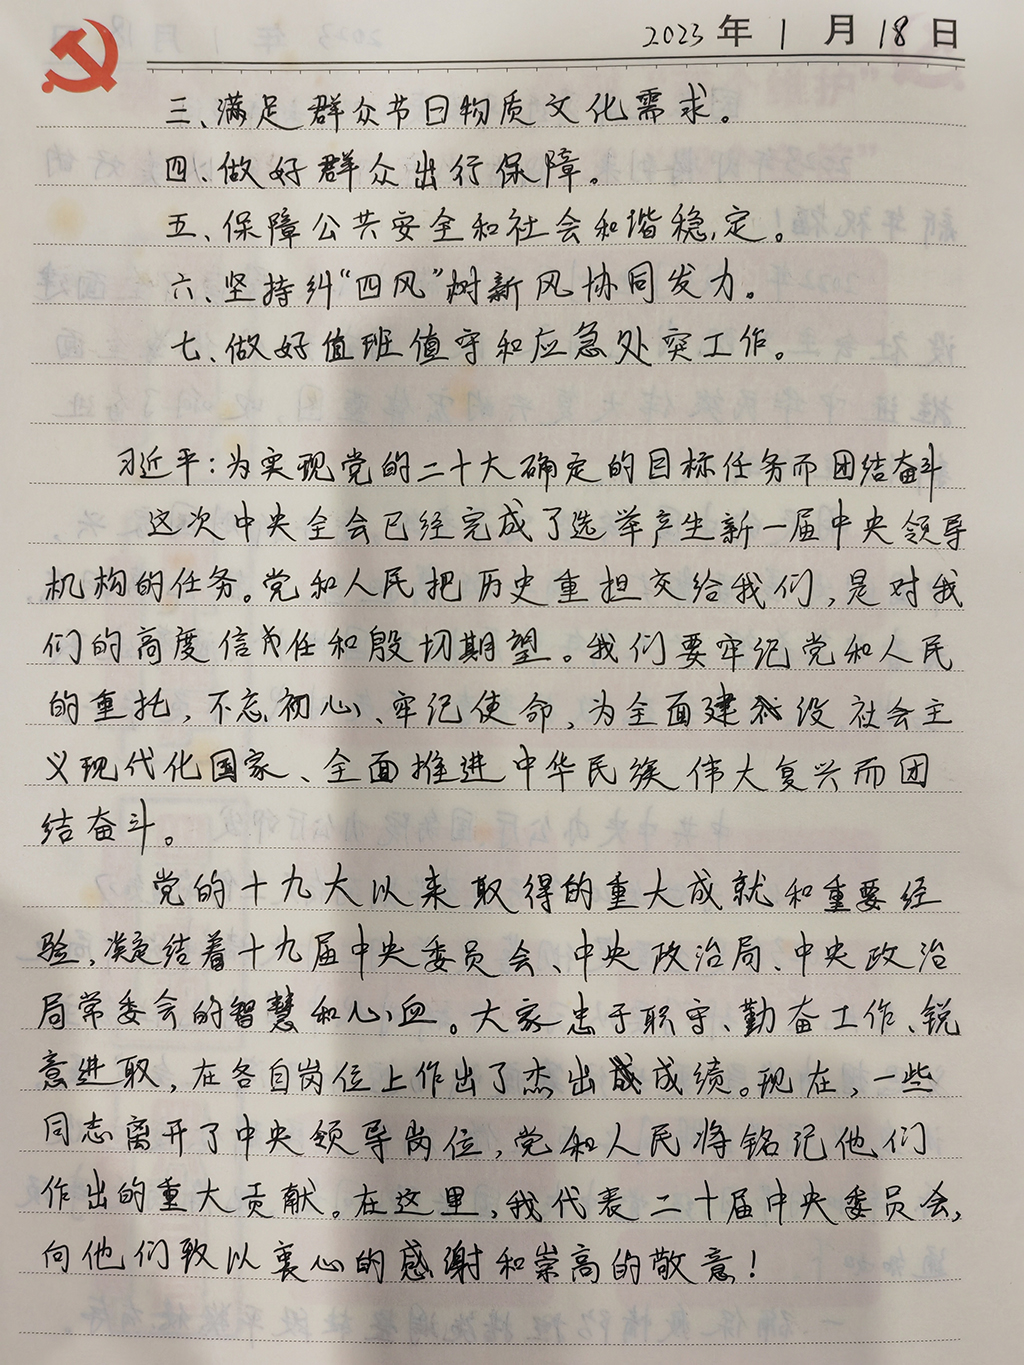 2023年1月18日
三、满足群众节日物质文化需求。
四、做好群众出行保障。
五、保障公共安全和社会和谐稳定。
六、坚持纠“四风”树新风协同发力。
七、做好值班值守和应急处突工作。
习近平：为实现党的二十大确定的目标任务而团结奋斗
这次中央全会已经完成了选举产生新一届中央领导
机构的任务。党和人民把历史重担交给我们，是对我
们的高度信任和殷切期望。我们要牢记党和人民
的重托，不忘初心、牢记使命，为全面建设社会主
义现代化国家、全面推进中华民族伟大复兴而团
结奋斗。
党的十九大以来取得的重大成就和重要经
验，凝结着十九届中央委员会、中央政治局、中央政治
局常委会的智慧和心血。大家忠于职守、勤奋工作、锐
意进取，在各自岗位上作出了杰出成绩。现在，一些
同志离开了中央领导岗位，党和人民将铭记他们
作出的重大贡献。在这里，我代表二十届中央委员会，
向他们致以衷心的感谢和崇高的敬意！